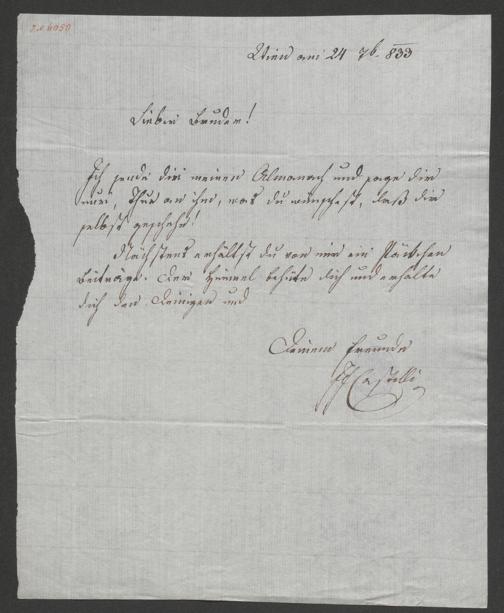 Wien am 24 7b. 833
Lieber Bruder!
Ich sende dir meinen Almanach und sage dir
nur, Thue an ihm, was du wünschest, daß dir
selbst geschehe!
Nächstens erhältst du von mir ein Päckchen
Beiträge. Der Himmel behüte dich und erhalte
dich den Deinigen und
Deinem Freunde
JFCastelli